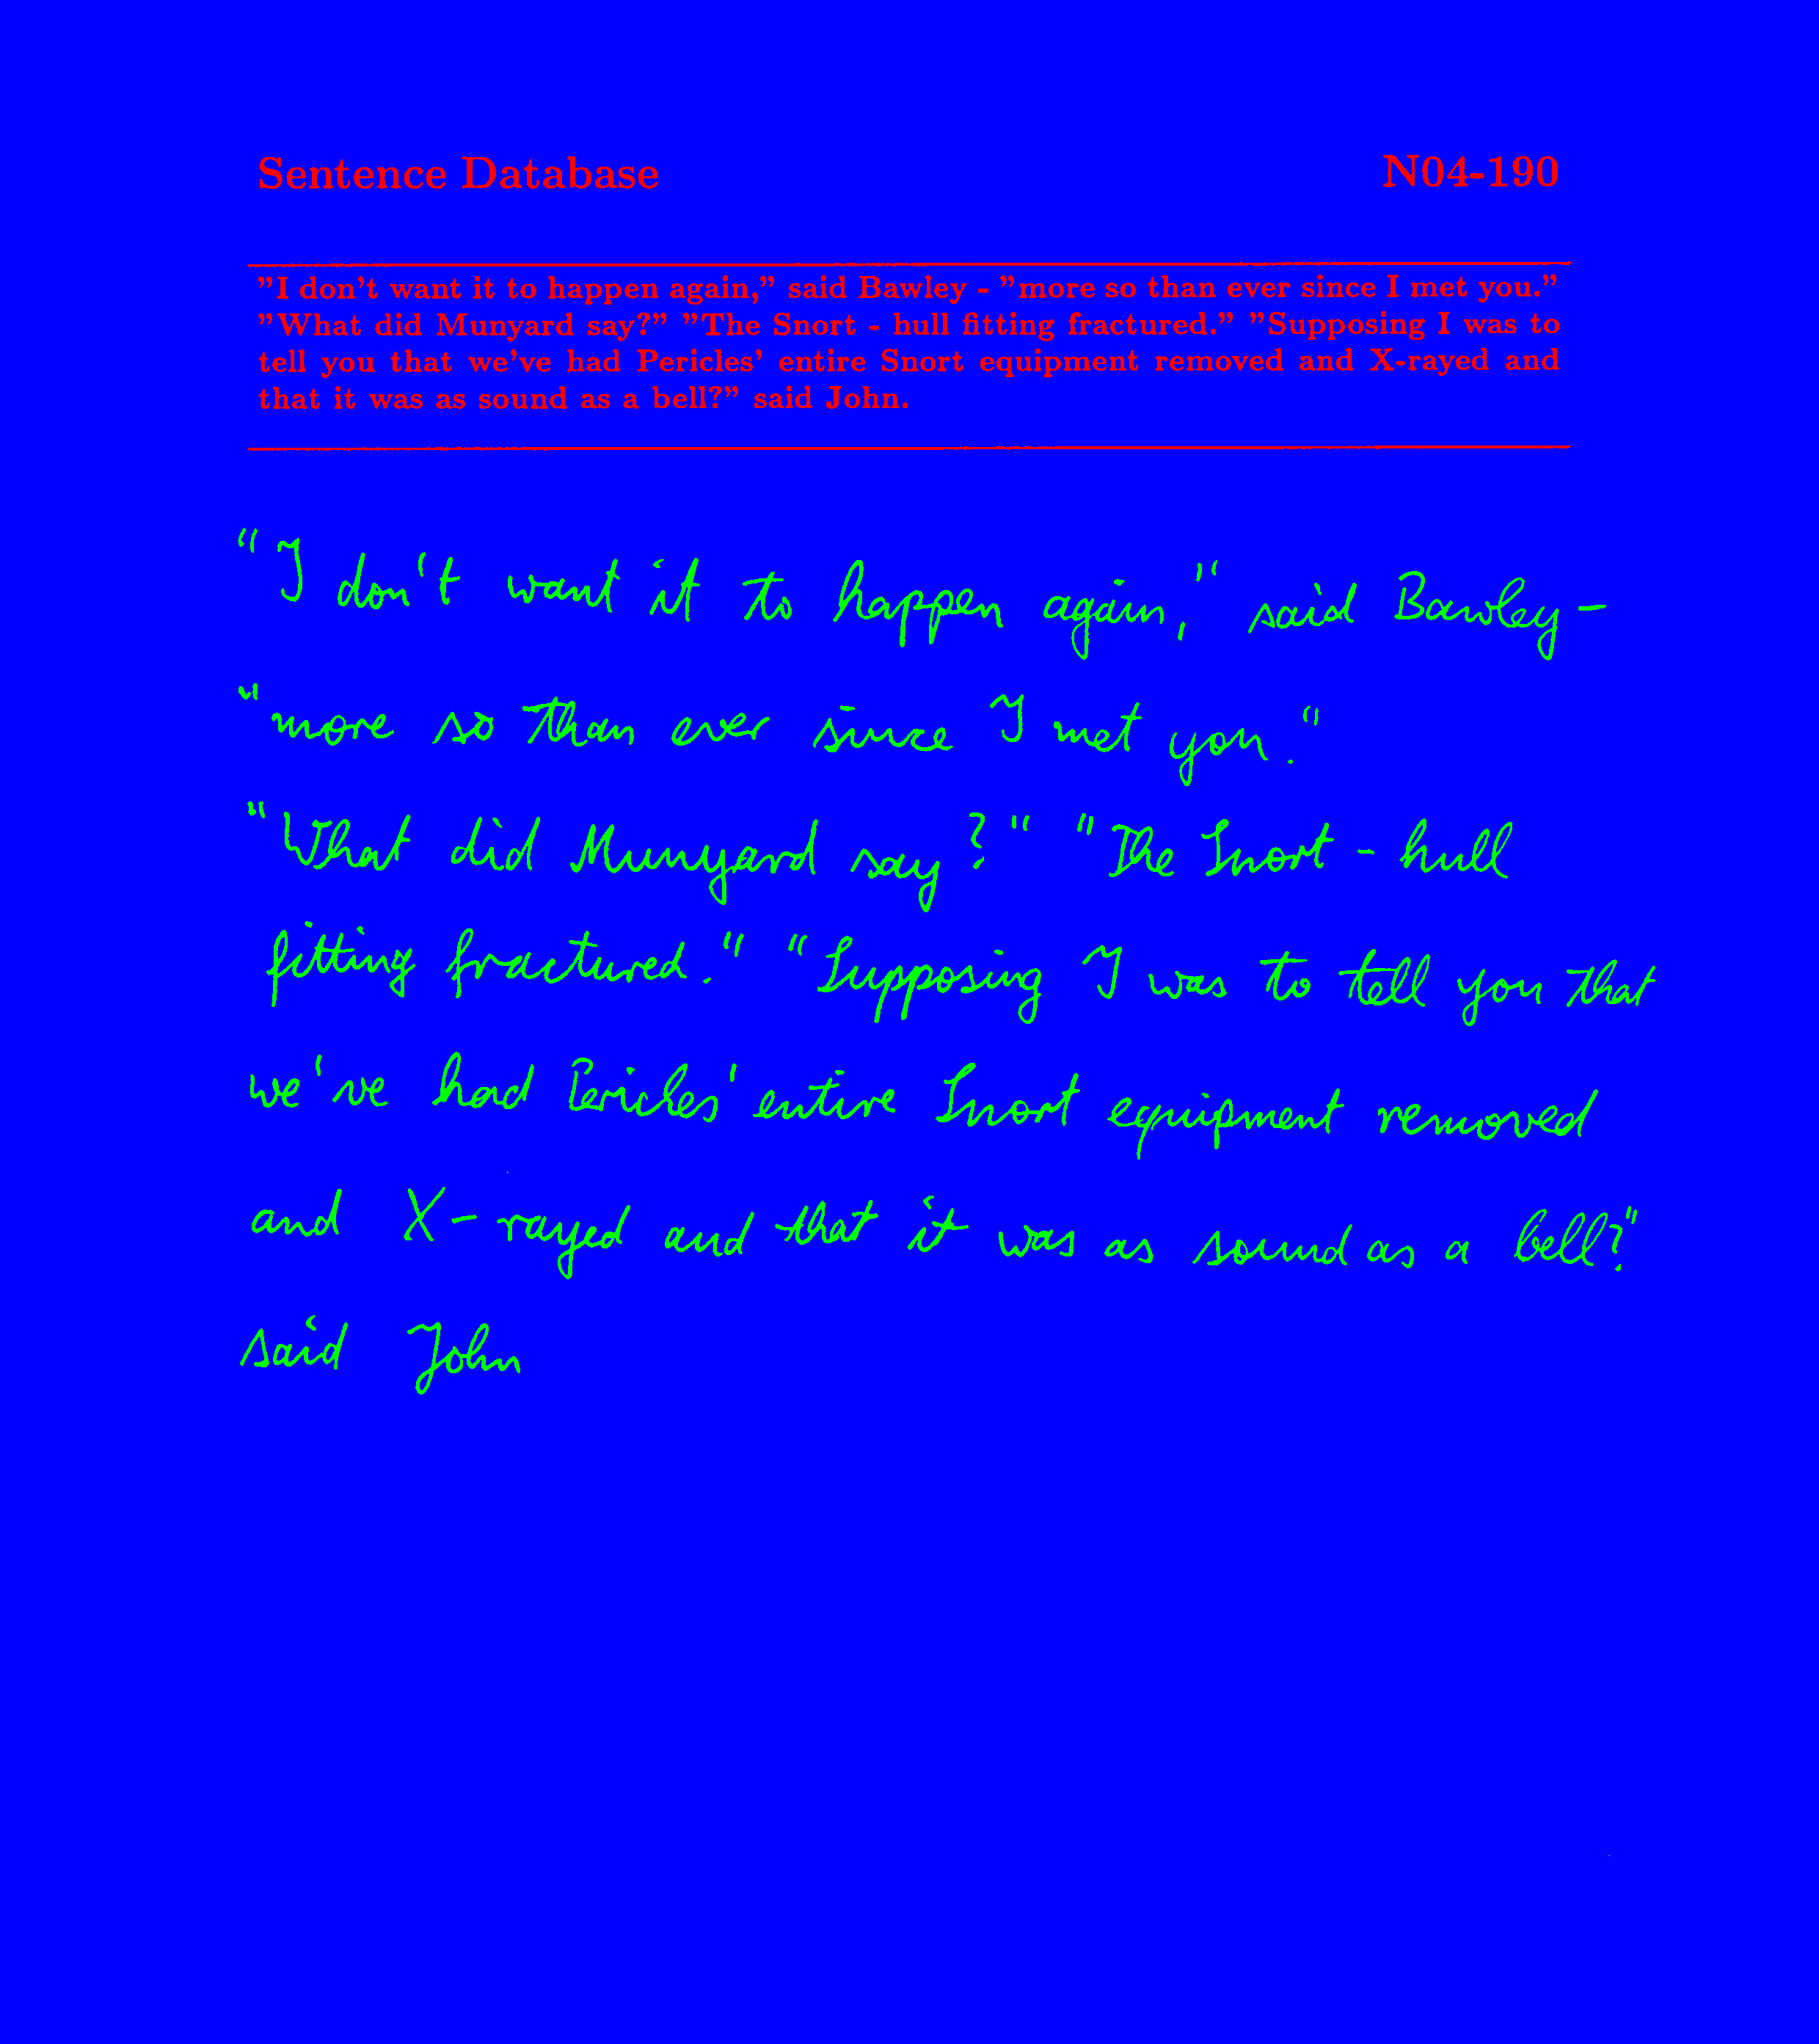 Sentence Database N04-190
"I don't want it to happen again," said Bawley - "more so than ever since I met you."
"What did Munyard say?" "The Snort - hull fitting fractured." "Supposing I was to
tell you that we've had Pericles' entire Snort equipment removed and X-rayed and
that it was as sound as a bell?" said John.
"I don't want it to happen again," said Bawley -
"more so than ever since I met you."
"What did Munyard say?" "The Snort - hull
fitting fractured." "Supposing I was to tell you that
we've had Pericles' entire Snort equipment removed
and X-rayed and that it was as sound as a bell?"
said John